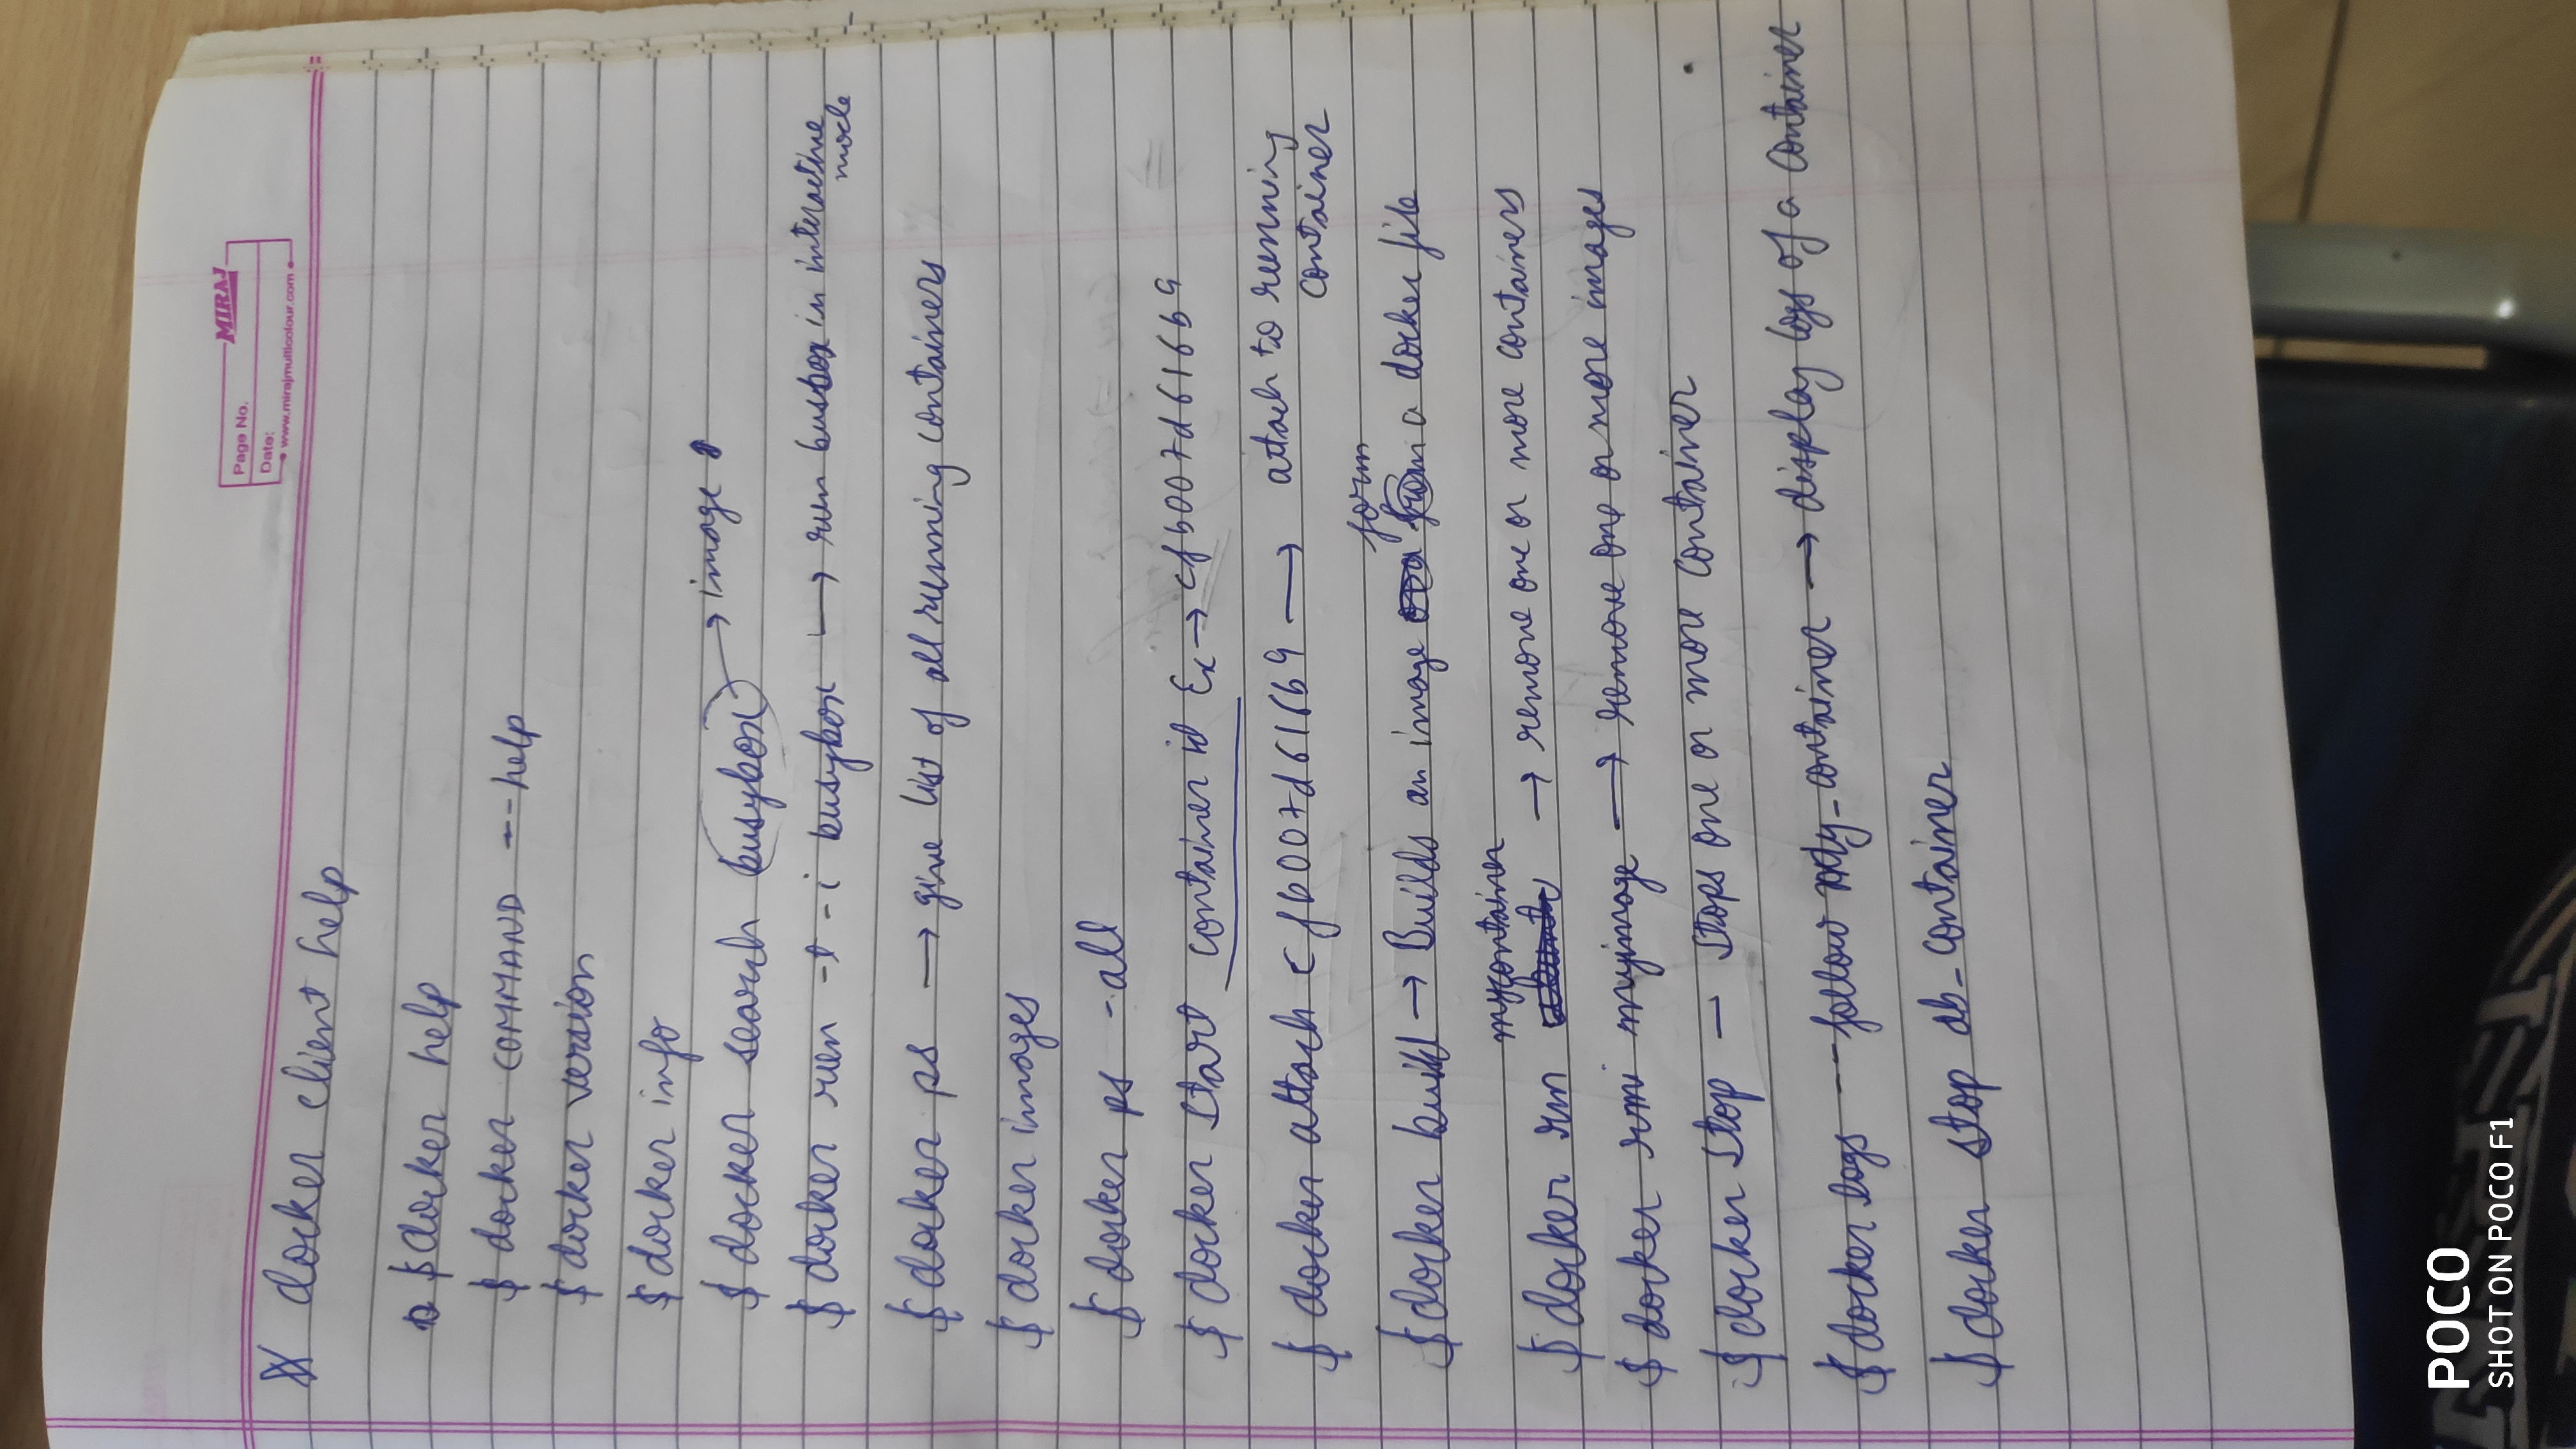 MIRAJ
Page No.
Date:
www.mirajmulticolour.com
docker client help
$ docker help
$ docker COMMAND --help
$ docker version
$ docker info
$ docker search busybox → image
$ docker run -t -i busybox → run busbox in interactive
mode
$ docker ps → give list of all running containers
$ docker images
$ docker ps -all
$ docker start container id Ex → cfb007d616b9
$ docker attach cfb007d616b9 → attach to running
container
form
$ docker build → Builds an image from a docker file
mycontainer
$ docker rm → remove one or more containers
$ docker rmi myimage → remove one or more images
$ docker stop – stops one or more container
$ docker logs --follow my_container → display logs of a container
$ docker stop db_container
POCO
SHOT ON POCO F1